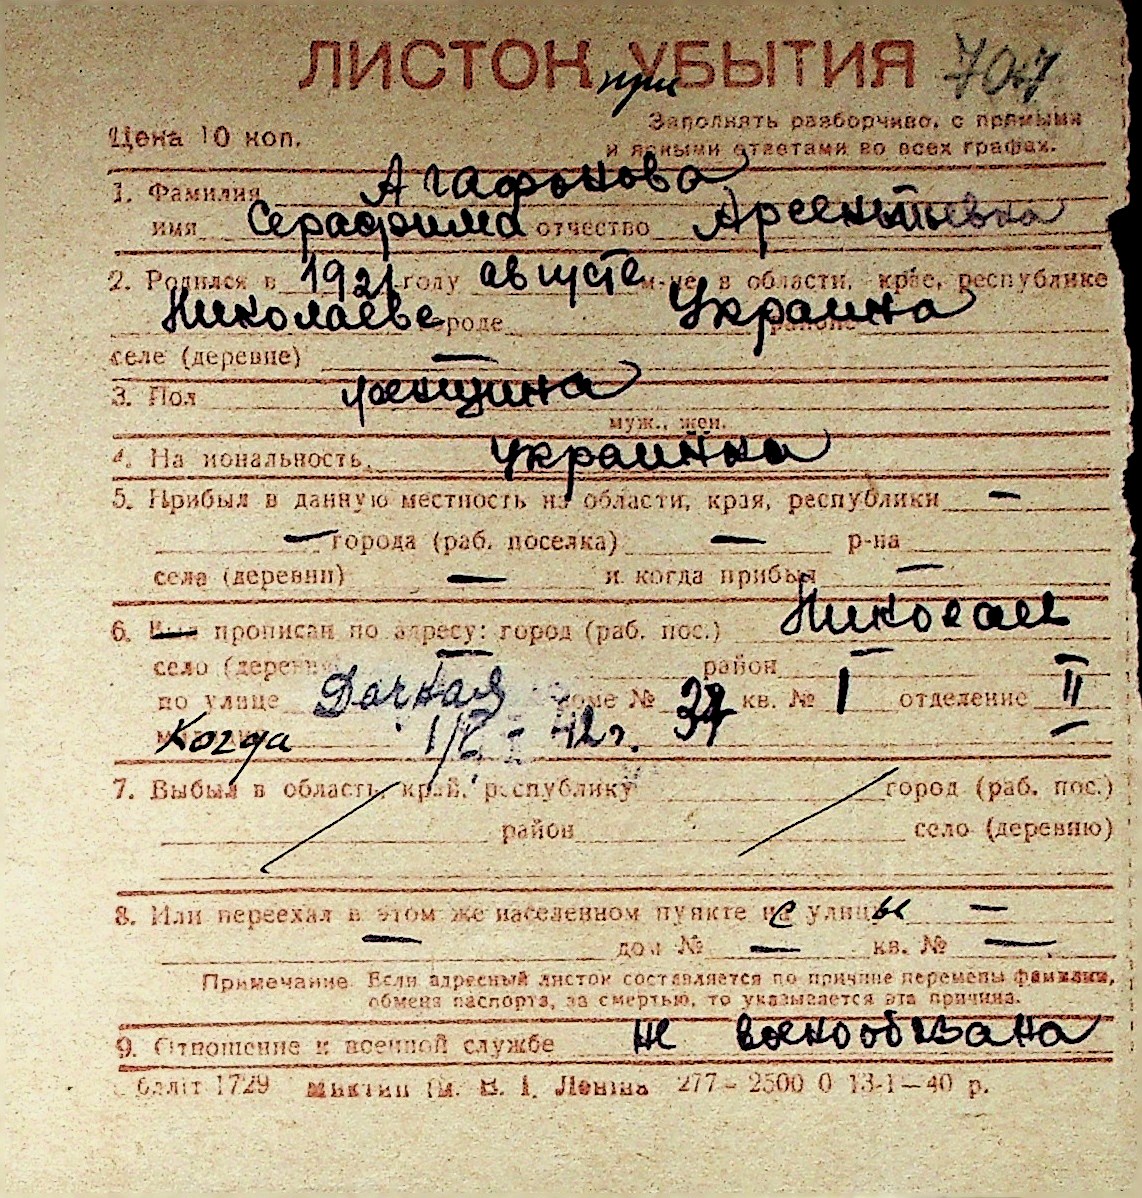 ЛИСТОК УБЫТИЯ 707
при
Цена 10 коп.
Заполнять разборчиво, с прямыми
и ясными ответами во всех графах.
1. Фамилия Агафонова
имя Серафима отчество Арсентьевна
2. Родился в 1921 году августе м-це, в области, крае, республике
Николаеве городе Украина районе
селе (деревне) —
3. Пол женщина
муж., жен.
4. Национальность украинка
5. Прибыл в данную местность из области, края, республики —
— города (раб. поселка) — р-на
села (деревни) — и когда прибыл —
6. Был прописан по адресу: город (раб. пос.) Николаев
село (деревня) — район — —
по улице Дачная доме № 37 кв. № I отделение II
Когда 42 г. 37 —
7. Выбыл в область, край, республику город (раб. пос.)
район село (деревню)
8. Или переехал в этом же населенном пункте с улицы —
— дом № — кв. № —
Примечание. Если адресный листок составляется по причине перемены фамилии,
обмена паспорта, за смертью, то указывается эта причина.
9. Отношение к военной службе не военообязана
Обліт 1729 Миктип ім. В. І. Леніна 277–2500 0 13-1–40 р.